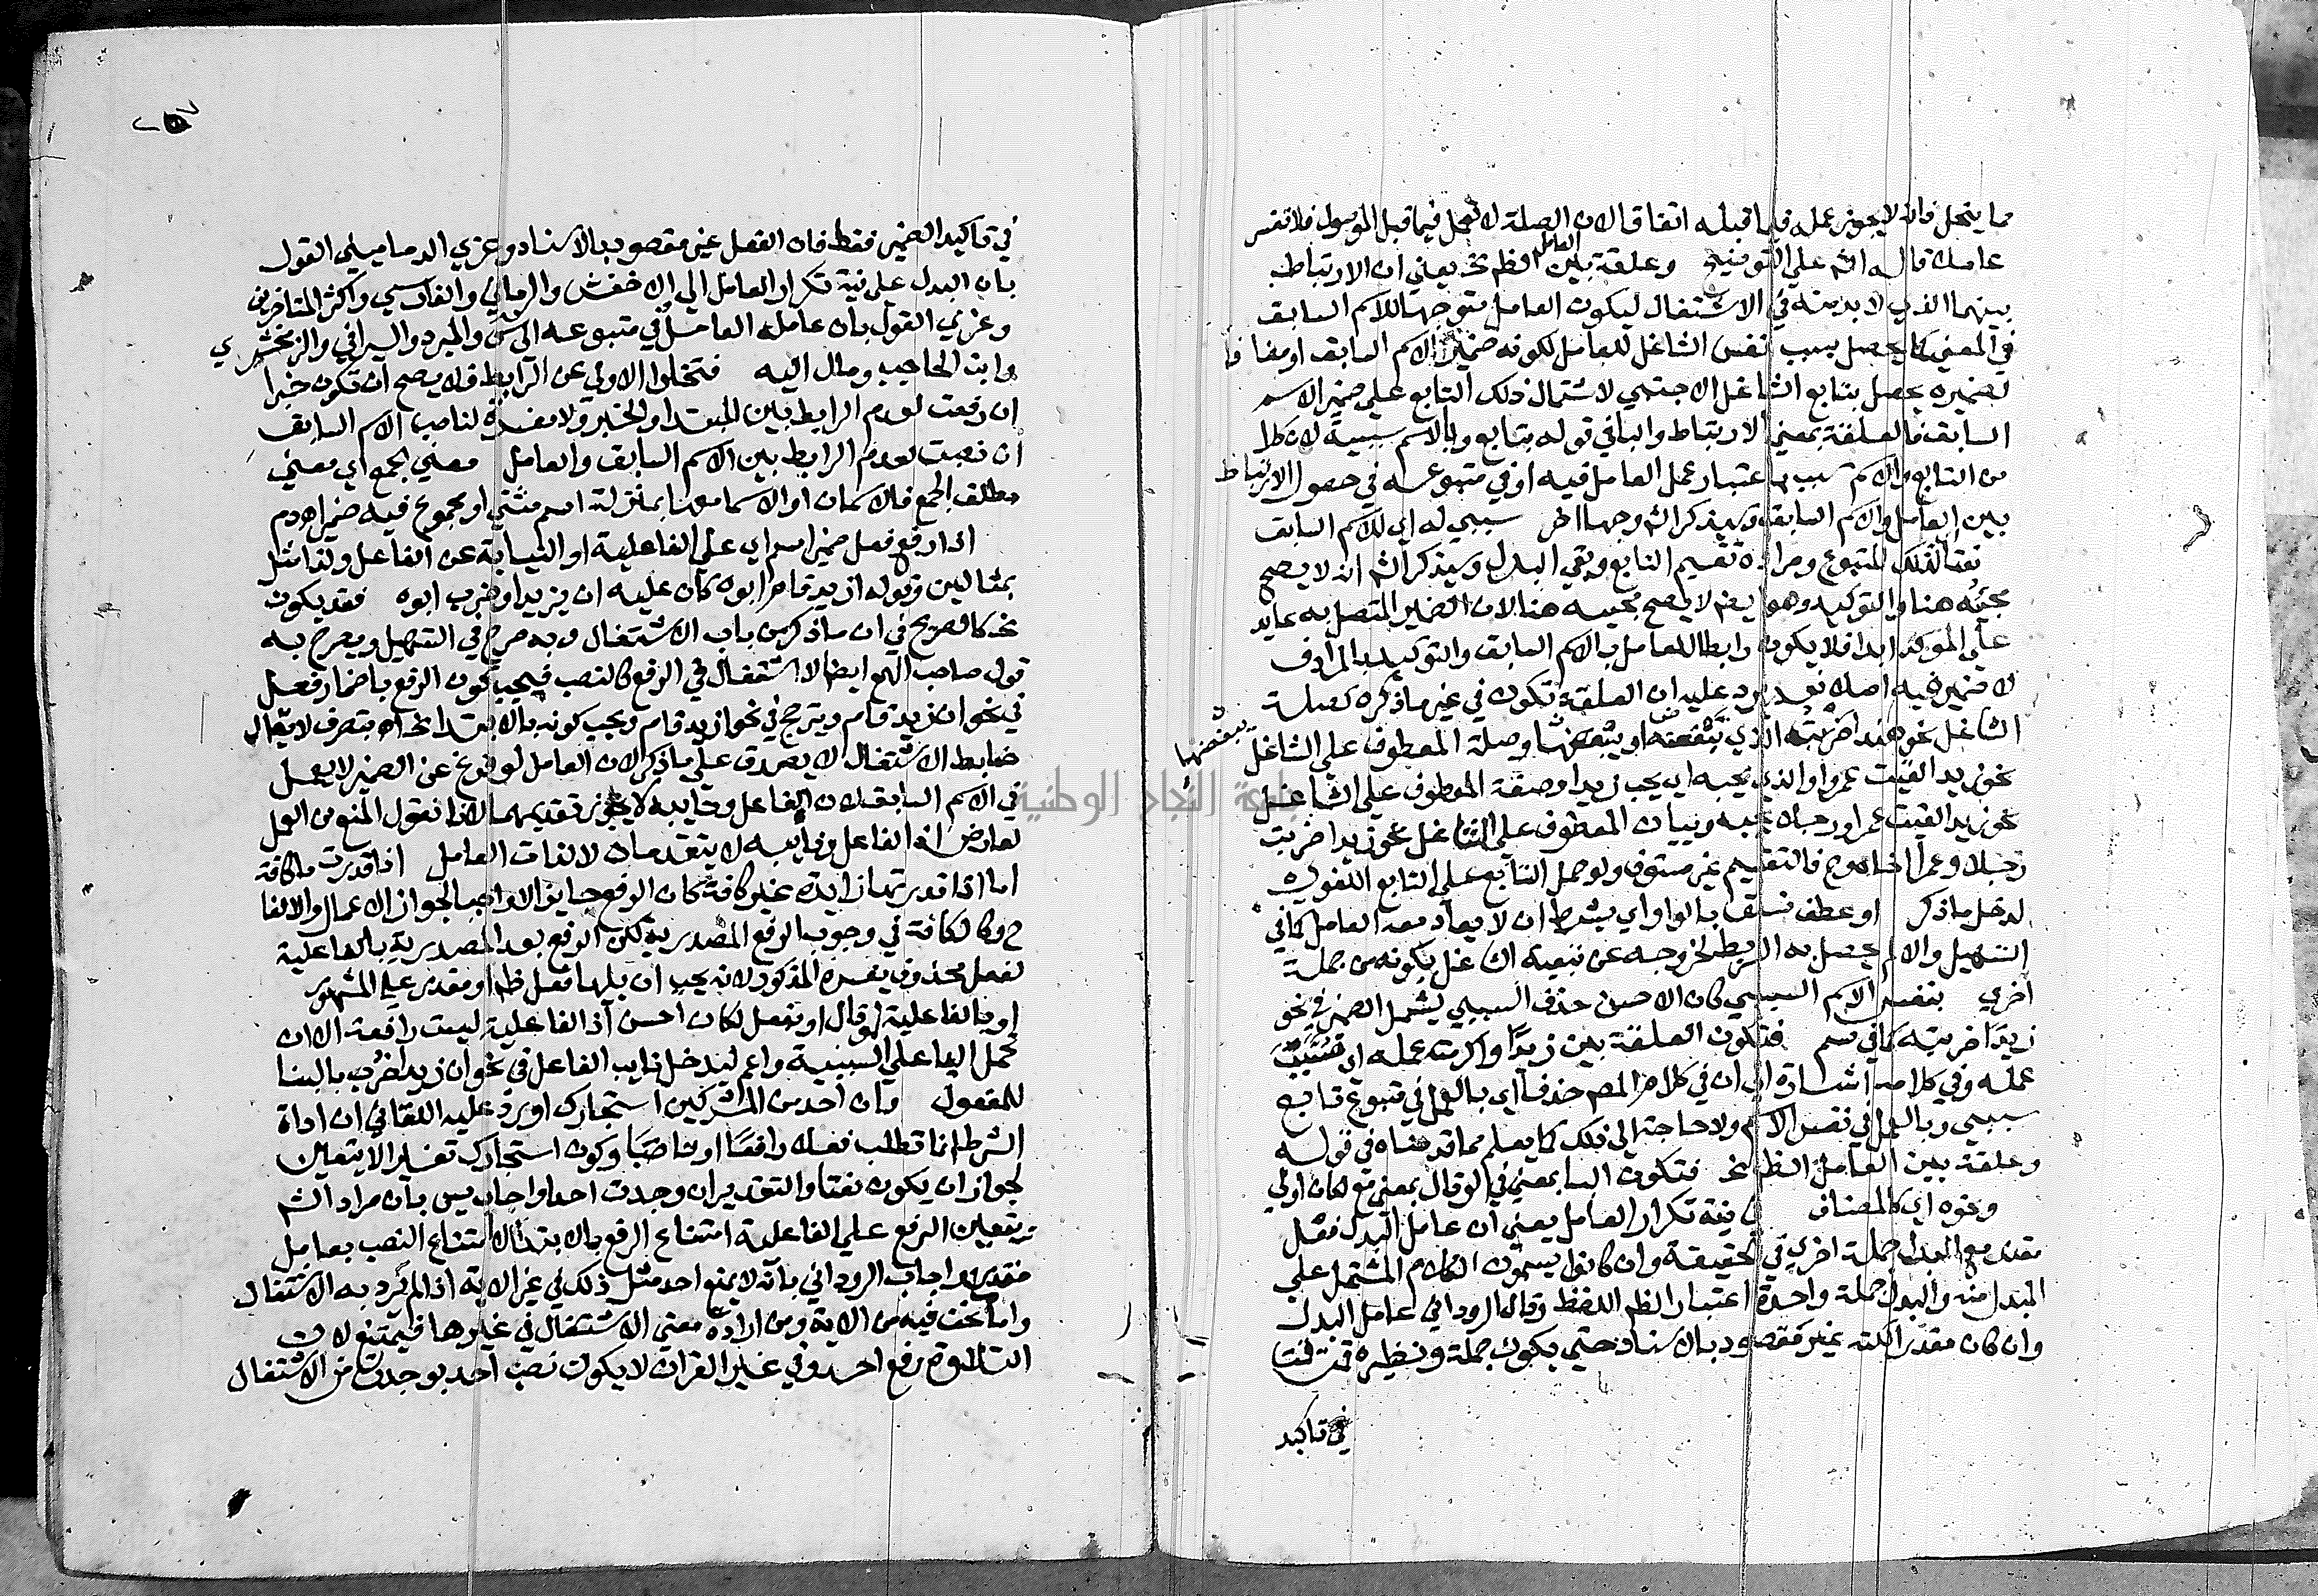 ما ينحل فانه لا يجوز عمله فيما قبله اتفاقا لان الصلة لا تعمل فيما قبل الموصول فلا تفسر
عاملا قاله الش علي التوضيح وعلقة بين العامل الظ الخ يعني ان الارتباط
بينهما الذي لا بد منه في الاشتغال ليكون العامل متوجها للاسم السابق
في المعني كما يحصل بسبب نفس الشاغل للعامل لكونه ضمير الاسم السابق او مضافا
لضميره يحصل بتابع الشاغل الاجنبي لاشتمال ذلك التابع علي ضمير الاسم
السابق فالعلقة بمعني الارتباط والبا في قوله بتابع وبالاسم سببية لان كلا
من التابع والاسم سبب باعتبار عمل العامل فيه او في متبوعه في حصول الارتباط
بين العامل والاسم السابق وسيذكر الش وجها اخر سببي له اي للاسم السابق
نعتا لذلك المتبوع ومراده تقسيم التابع وبقي البدل وسيذكر الش انه لا يصح
مجيئه هنا والتوكيد وهو ايضا لا يصح مجيئه هنا لان الضمير المتصل به عايد
علي الموكد ابدا فلا يكون رابطا للعامل بالاسم السابق والتوكيد بالمرادف
لا ضمير فيه اصلا نعم يرد عليه ان العلقة تكون في غير ما ذكره كصلة
الشاغل نحو هندا ضربت الذي يبغضها وصلة المعطوف علي الشاغل
يبغضها
نحو زيدا لقيت عمروا والذي يحبه اي يحب زيدا وصفة المعطوف علي الشاغل
نحو زيدا لقيت عمرا ورجلا يحبه وبيان المعطوف علي الشاغل نحو زيدا ضربت
رجلا وعمرا اخاه وح فالتقسيم غير مستوف ولو حمل التابع علي التابع اللغوي
لدخل ما ذكر او عطف نسق بالواو اي بشرط ان لا يعاد معه العامل كما في
التسهيل والا لم يحصل به الربط لخروجه عن تبعية الشاغل بكونه من جملة
اخري بنفس الاسم السببي كان الاحسن حذف السببي ليشمل الضمير في نحو
زيدا ضربته كما في سم فتكون العلقة بين زيدا واكرمت عمله
عمله وفي كلامه اشارة الي ان في كلام المص حذفا اي بالعمل في متبوع تابع
سببي وبالعمل في نفس الاسم ولا حاجة الي ذلك كما يعلم مما قدمناه في قوله
وعلقة بين العامل الظ الخ فتكون البا بمعني في لو قال بمعني مع لكان اولي
ونحوه اي كالمضاف في نية تكرار العامل يعني ان عامل البدل فعل
مقدر مع البدل جملة اخري في الحقيقة وان كانوا يسمون الكلام المشتمل علي
المبدل منه والبدل جملة واحدة اعتبارا لظ اللفظ وقال الروداني عامل البدل
وان كان مقدرا لكنه غير مقصود بالاسناد حتي يكون جملة ونظيره قمت قمت
في تاكيد
في تاكيد الضمير فقط فان الفعل غير مقصود بالاسناد وعزي الدماميني القول
بان البدل علي نية تكرار العامل الي الاخفش والرماني والفارسي واكثر المتاخرين
وعزي القول بان عامله العامل في متبوعه الي س والمبرد والسيرافي والزمخشري
وابن الحاجب ومال اليه فتخلوا الاولي عن الرابط فلا يصح ان تكون خبرا
ان رفعت لعدم الرابط بين المبتدا والخبر ولا مفسرة لناصب الاسم السابق
ان نصبت لعدم الرابط بين الاسم السابق والعامل معني الجمع اي معني
مطلق الجمع فالاسمان او الاسما معها بمنزلة اسم مثني او مجموع فيه ضمير
اذا رفع فعل ضمير اسم اي علي الفاعلية او النيابة عن الفاعل ولذا مثل
بمثالين وقوله ازيد قام ابوه كان عليه ان يزيد او ضرب ابوه فقد يكون
الخ كالصريح في ان ما ذكر من باب الاشتغال وبه صرح في التسهيل ويصرح به
قول صاحب الهمع ايضا الاشتغال في الرفع كالنصب فيجب كون الرفع باضمار فعل
في نحو ان زيد قام ويترجح في نحو ازيد قام ويجب كونه بالابتدا الخ بتصرف لا يقال
ضابط الاشتغال لا يصدق علي ما ذكر لان العامل لو فرغ عن الضمير لا يعمل
في الاسم السابق لان الفاعل ونايبه لا يجوز تقديمهما لانا نقول المنع من العمل
لعارض ان الفاعل ونايبه لا يتقدمان لا لذات العامل اذا قدرت ما كافة
اما اذا قدرتها زايدة غير كافة كان الرفع جايزا لا واجبا لجواز الاعمال والالغا
ح وكالكافة في وجوب الرفع المصدرية لكن الرفع بعد المصدرية بالفاعلية
لفعل محذوف يفسره المذكور لانه يجب ان يليها فعل ظ او مقدر علي المشهور
او بالفاعلية لو قال او بفعل لكان احسن اذ الفاعلية ليست رافعة الا ان
تحمل البا علي السببية واعم ليدخل نايب الفاعل في نحو ان زيدا ضرب بالبنا
للمفعول وان احد من المشركين استجارك اورد عليه اللقاني ان اداة
الشرط انما تطلب فعلا رافعا او ناصبا وكون استجارك تفسيرا لا يتعين
لجواز ان يكون نعتا والتقدير ان وجدت احدا واجاب يس بان مراد الش
بتعين الرفع علي الفاعلية امتناع الرفع بالابتدا لا امتناع النصب بعامل
مقدر واجاب الروداني بانه لا يمنع احد مثل ذلك في غير الاية اذا لم يرد به الاشتغال
واما نحن فيه من الاية ومن ارادة معني الاشتغال في غيرها فيمتنع لان
التلاوة رفع احد وفي غير القران لا يكون نصب احد بوجدت من الاشتغال